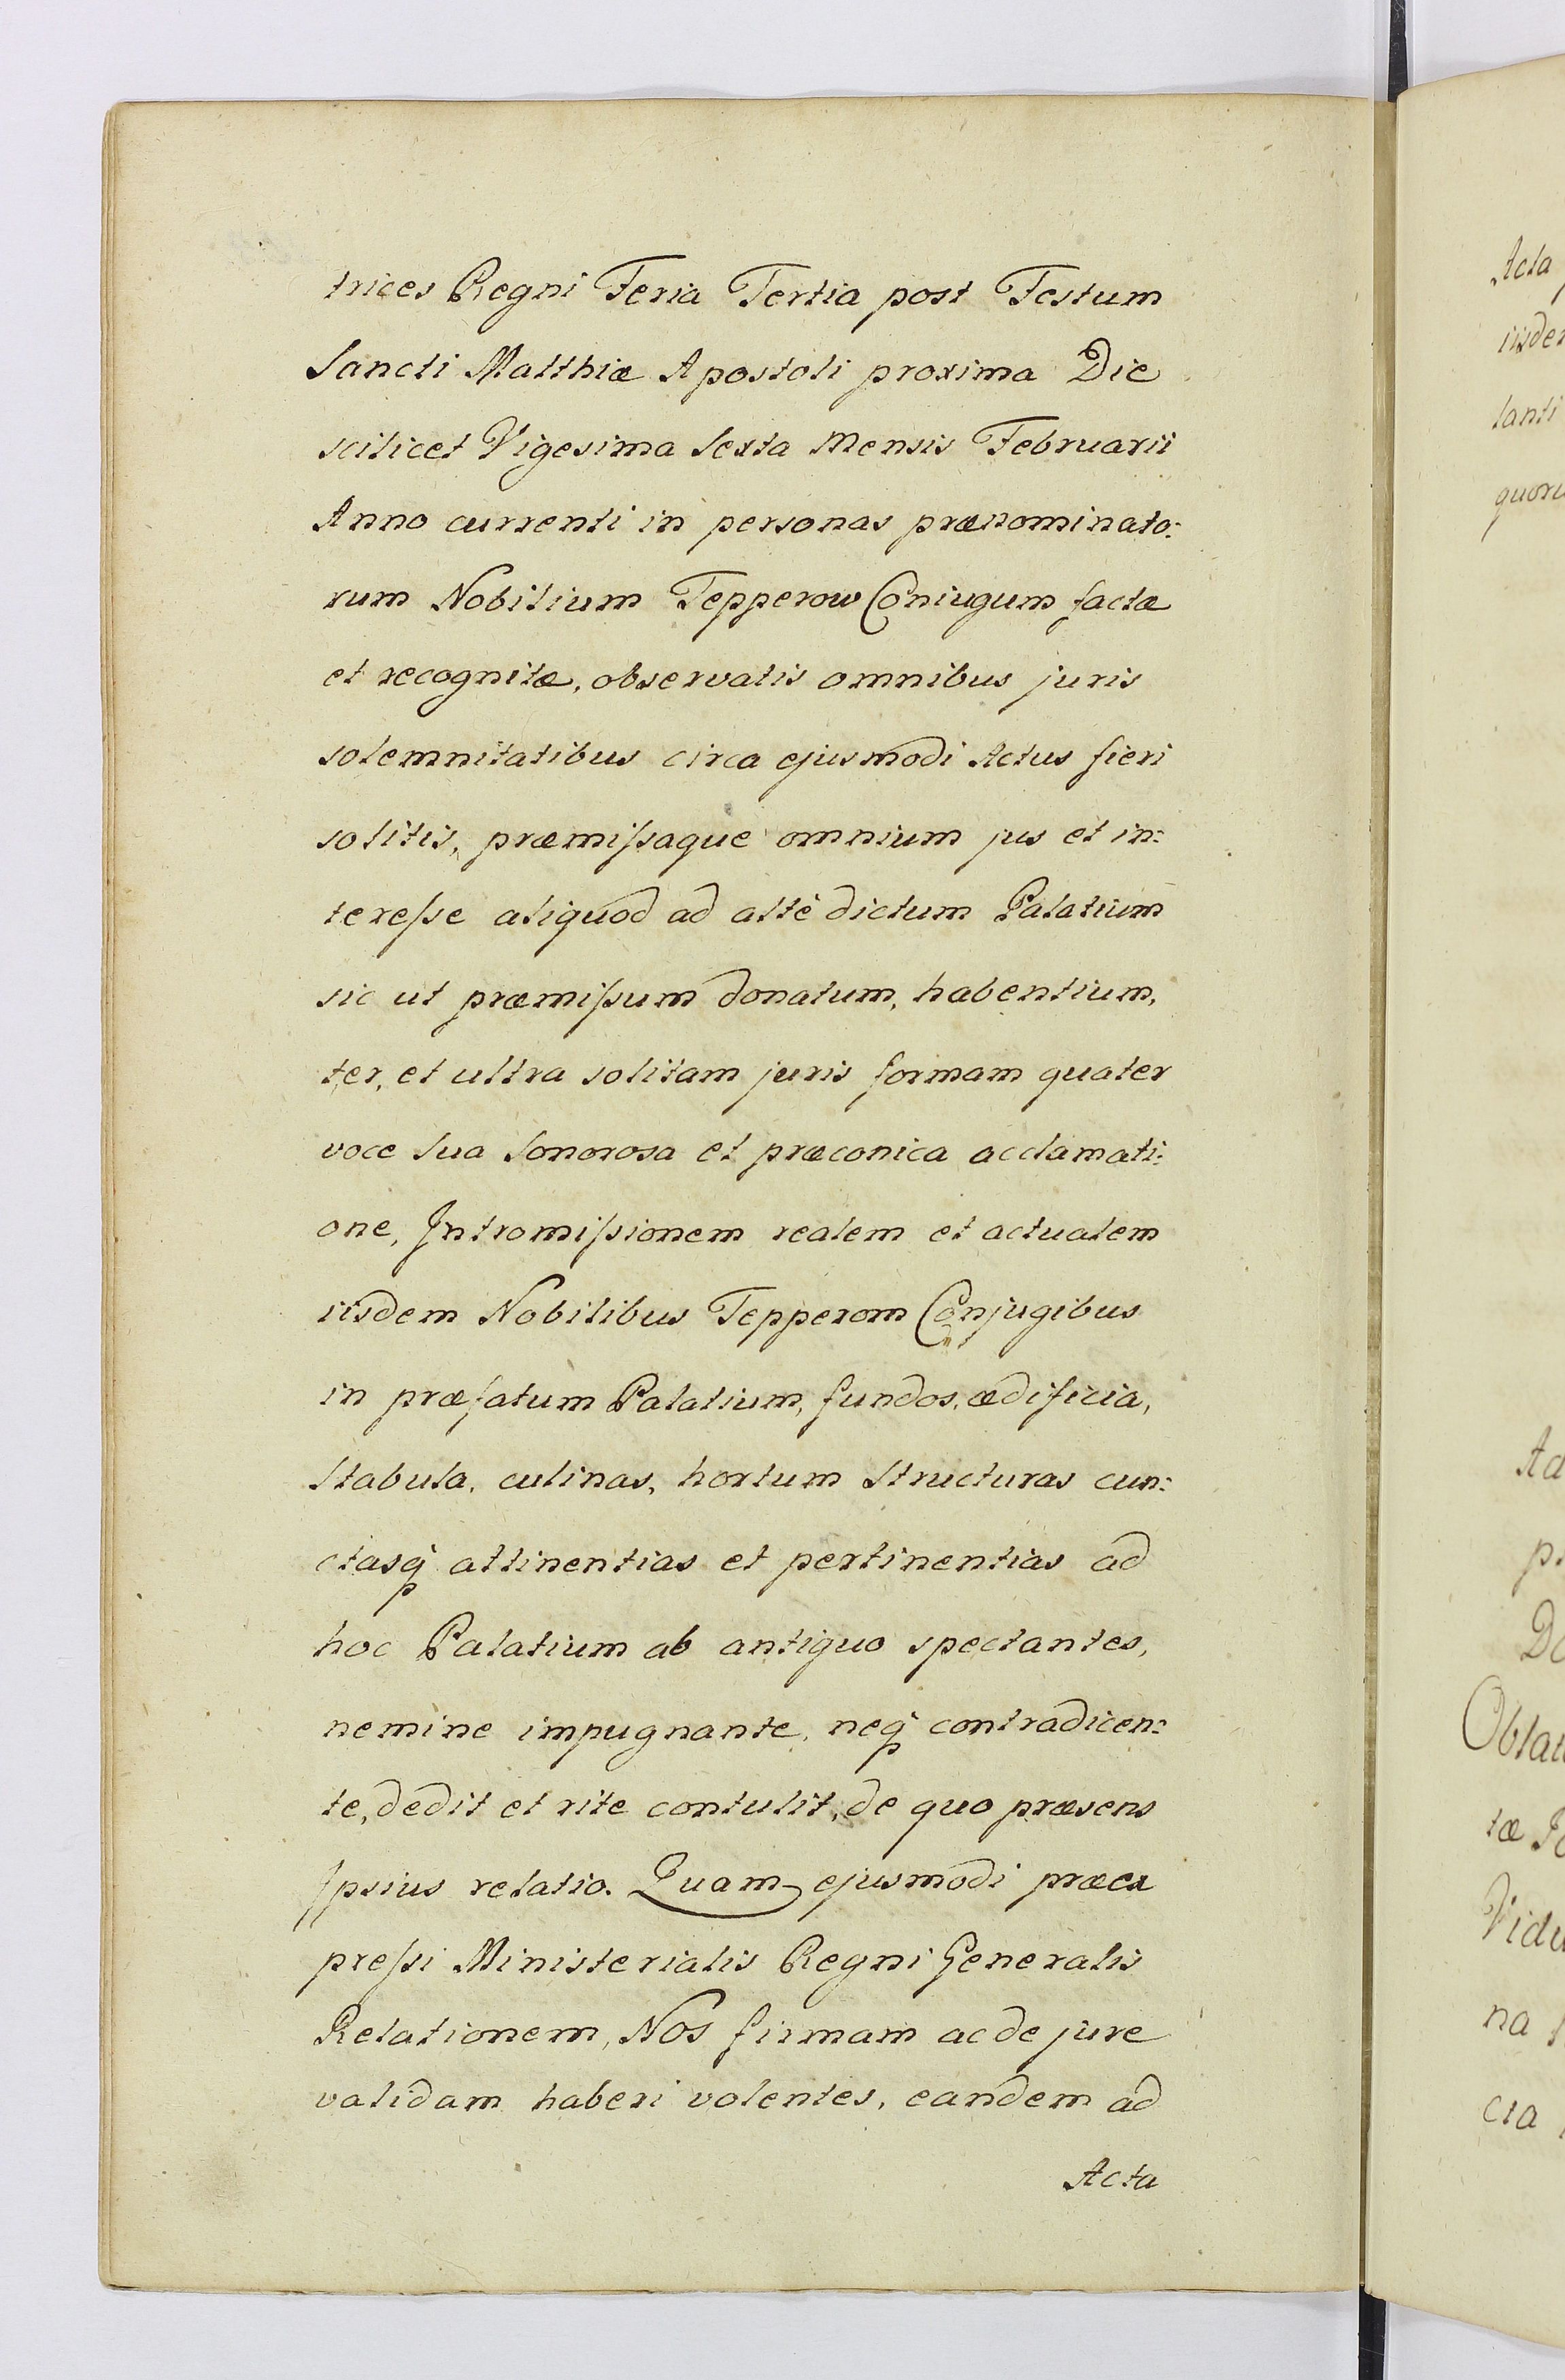 trices Regni Feria Tertia post Festum
Sancti Matthiæ Apostoli proxima Die
scilicet Vigesima Sexta Mensis Februarii
Anno currenti in personas prænominato:
rum Nobilium Tepperow Coniugum factæ
et recognitæ, observatis omnibus juris
solemnitatibus circa ejusmodi Actus fieri
solitis, præmiſsaque omnium jus et in:
tereſse aliquod ad altè dictum Palatium
sic ut præmiſsum donatum, habentium,
ter, et ultra solitam juris formam quater
voce Sua Sonorosa et præconica acclamati:
one, Intromiſsionem realem et actualem
iisdem Nobilibus Tepperom Conjugibus
in præfatum Palatium, fundos, ædificia,
Stabula, culinas, hortum Structuras cun:
ctasq́ attinentias et pertinentias ad
hoc Palatium ab antiquo spectantes,
nemine impugnante, neq́ contradicen:
te, dedit et rite contulit, de quo præsens
Ipsius relatio. Quam ejusmodi præex
preſsi Ministerialis Regni Generalis
Relationem, Nos firmam ac de jure
validam haberi volentes, eandem ad
Acta
Acta
iisde
tanti
quoru
Ad
p
Do
Oblat
tæ
Vidu
na
cia